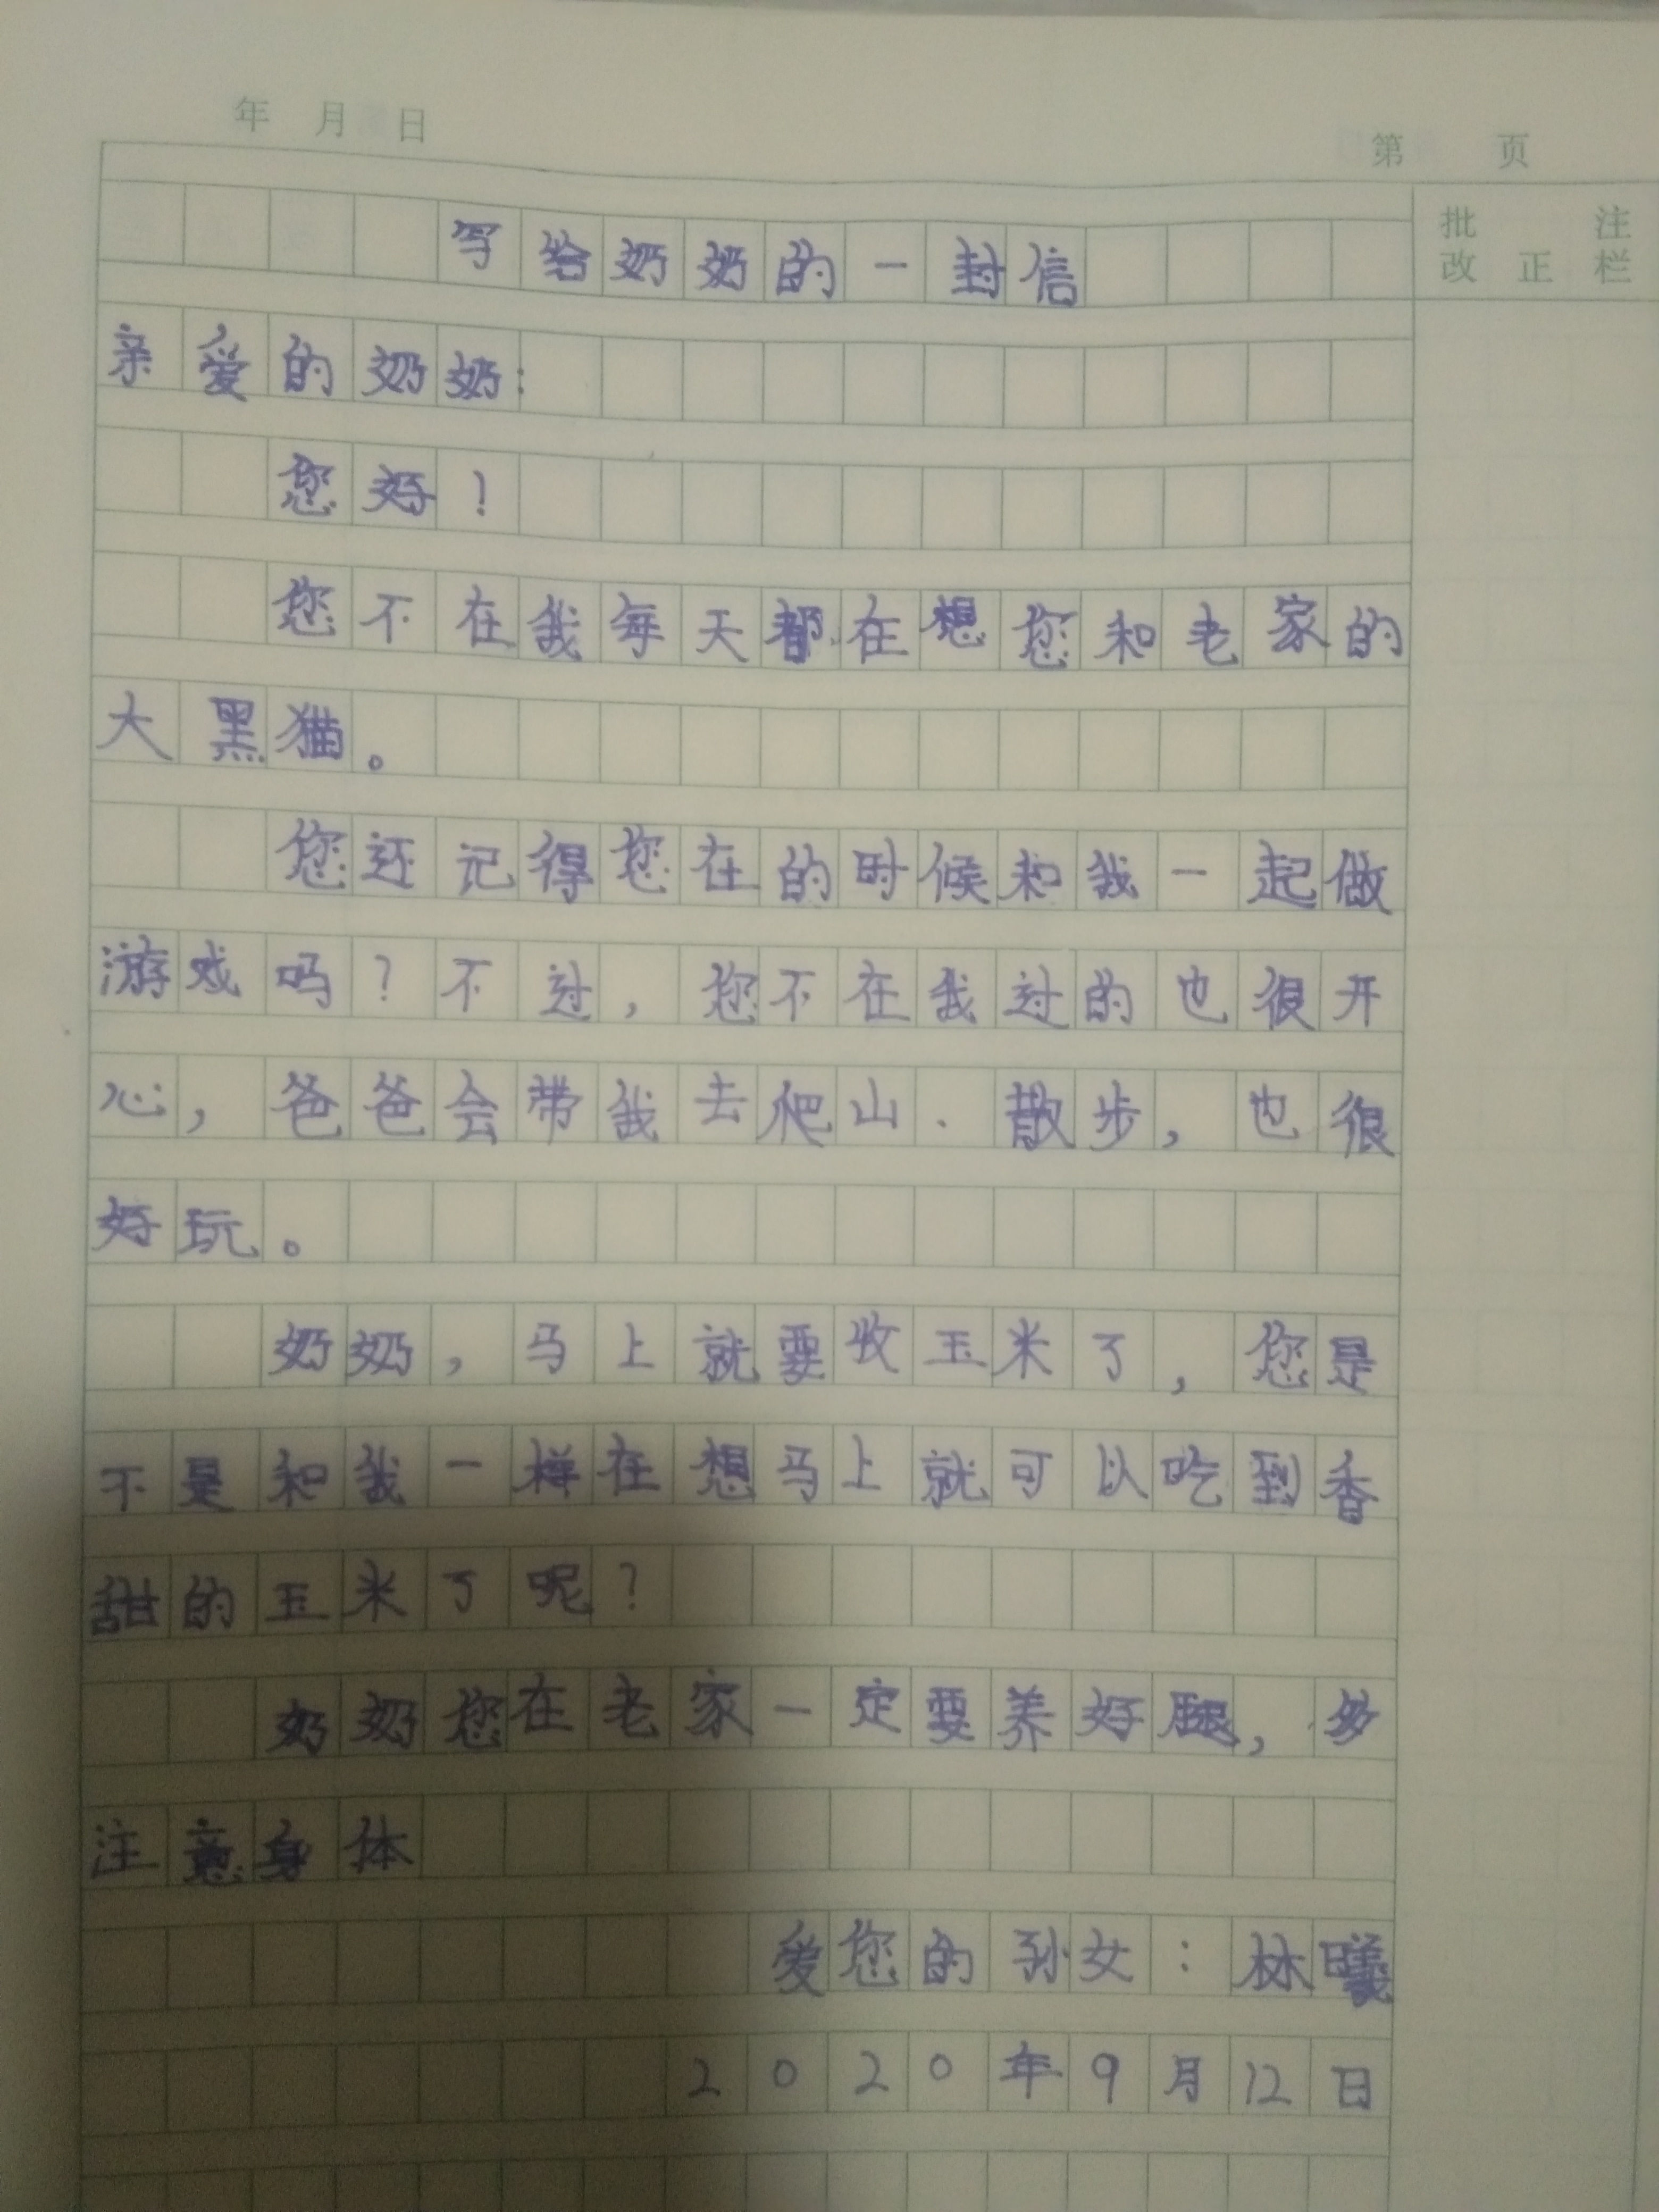 年 月 日
第 页
批 注
改 正 栏
写给奶奶的一封信
亲爱的奶奶:
您好!
您不在我每天都在想您和老家的
大黑猫。
您还记得您在的时候和我一起做
游戏吗?不过,您不在我过的也很开
心,爸爸会带我去爬山、散步,也很
好玩。
奶奶,马上就要收玉米了,您是
不是和我一样在想马上就可以吃到香
甜的玉米了呢?
奶奶您在老家一定要养好腿,多
注意身体
爱您的孙女:林曦
2020年9月12日